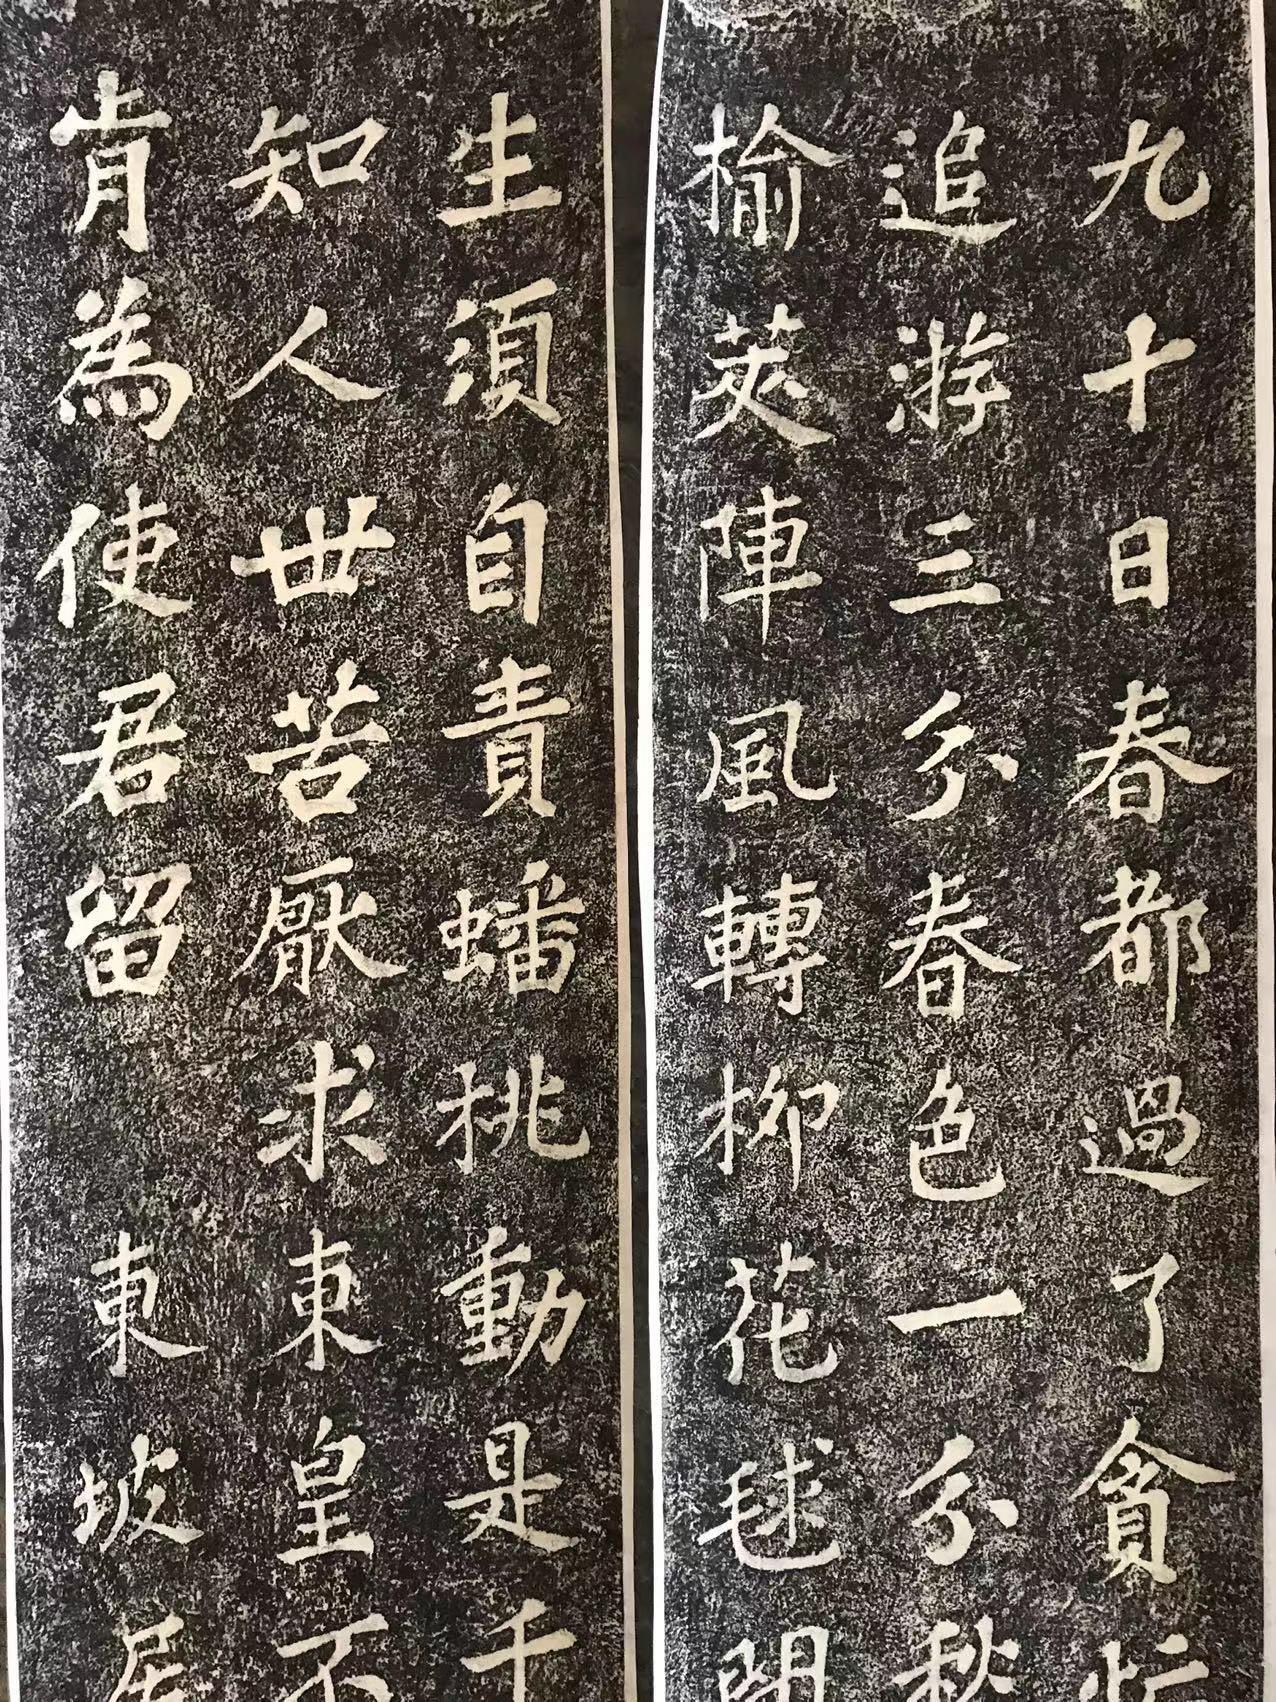 九十日春都過了貪忙
追游三分春色一分愁
榆莢陣風轉柳花毬閬
生須自責蟠桃動是千
知人世苦厭求東皇不
肯為使君留東坡居